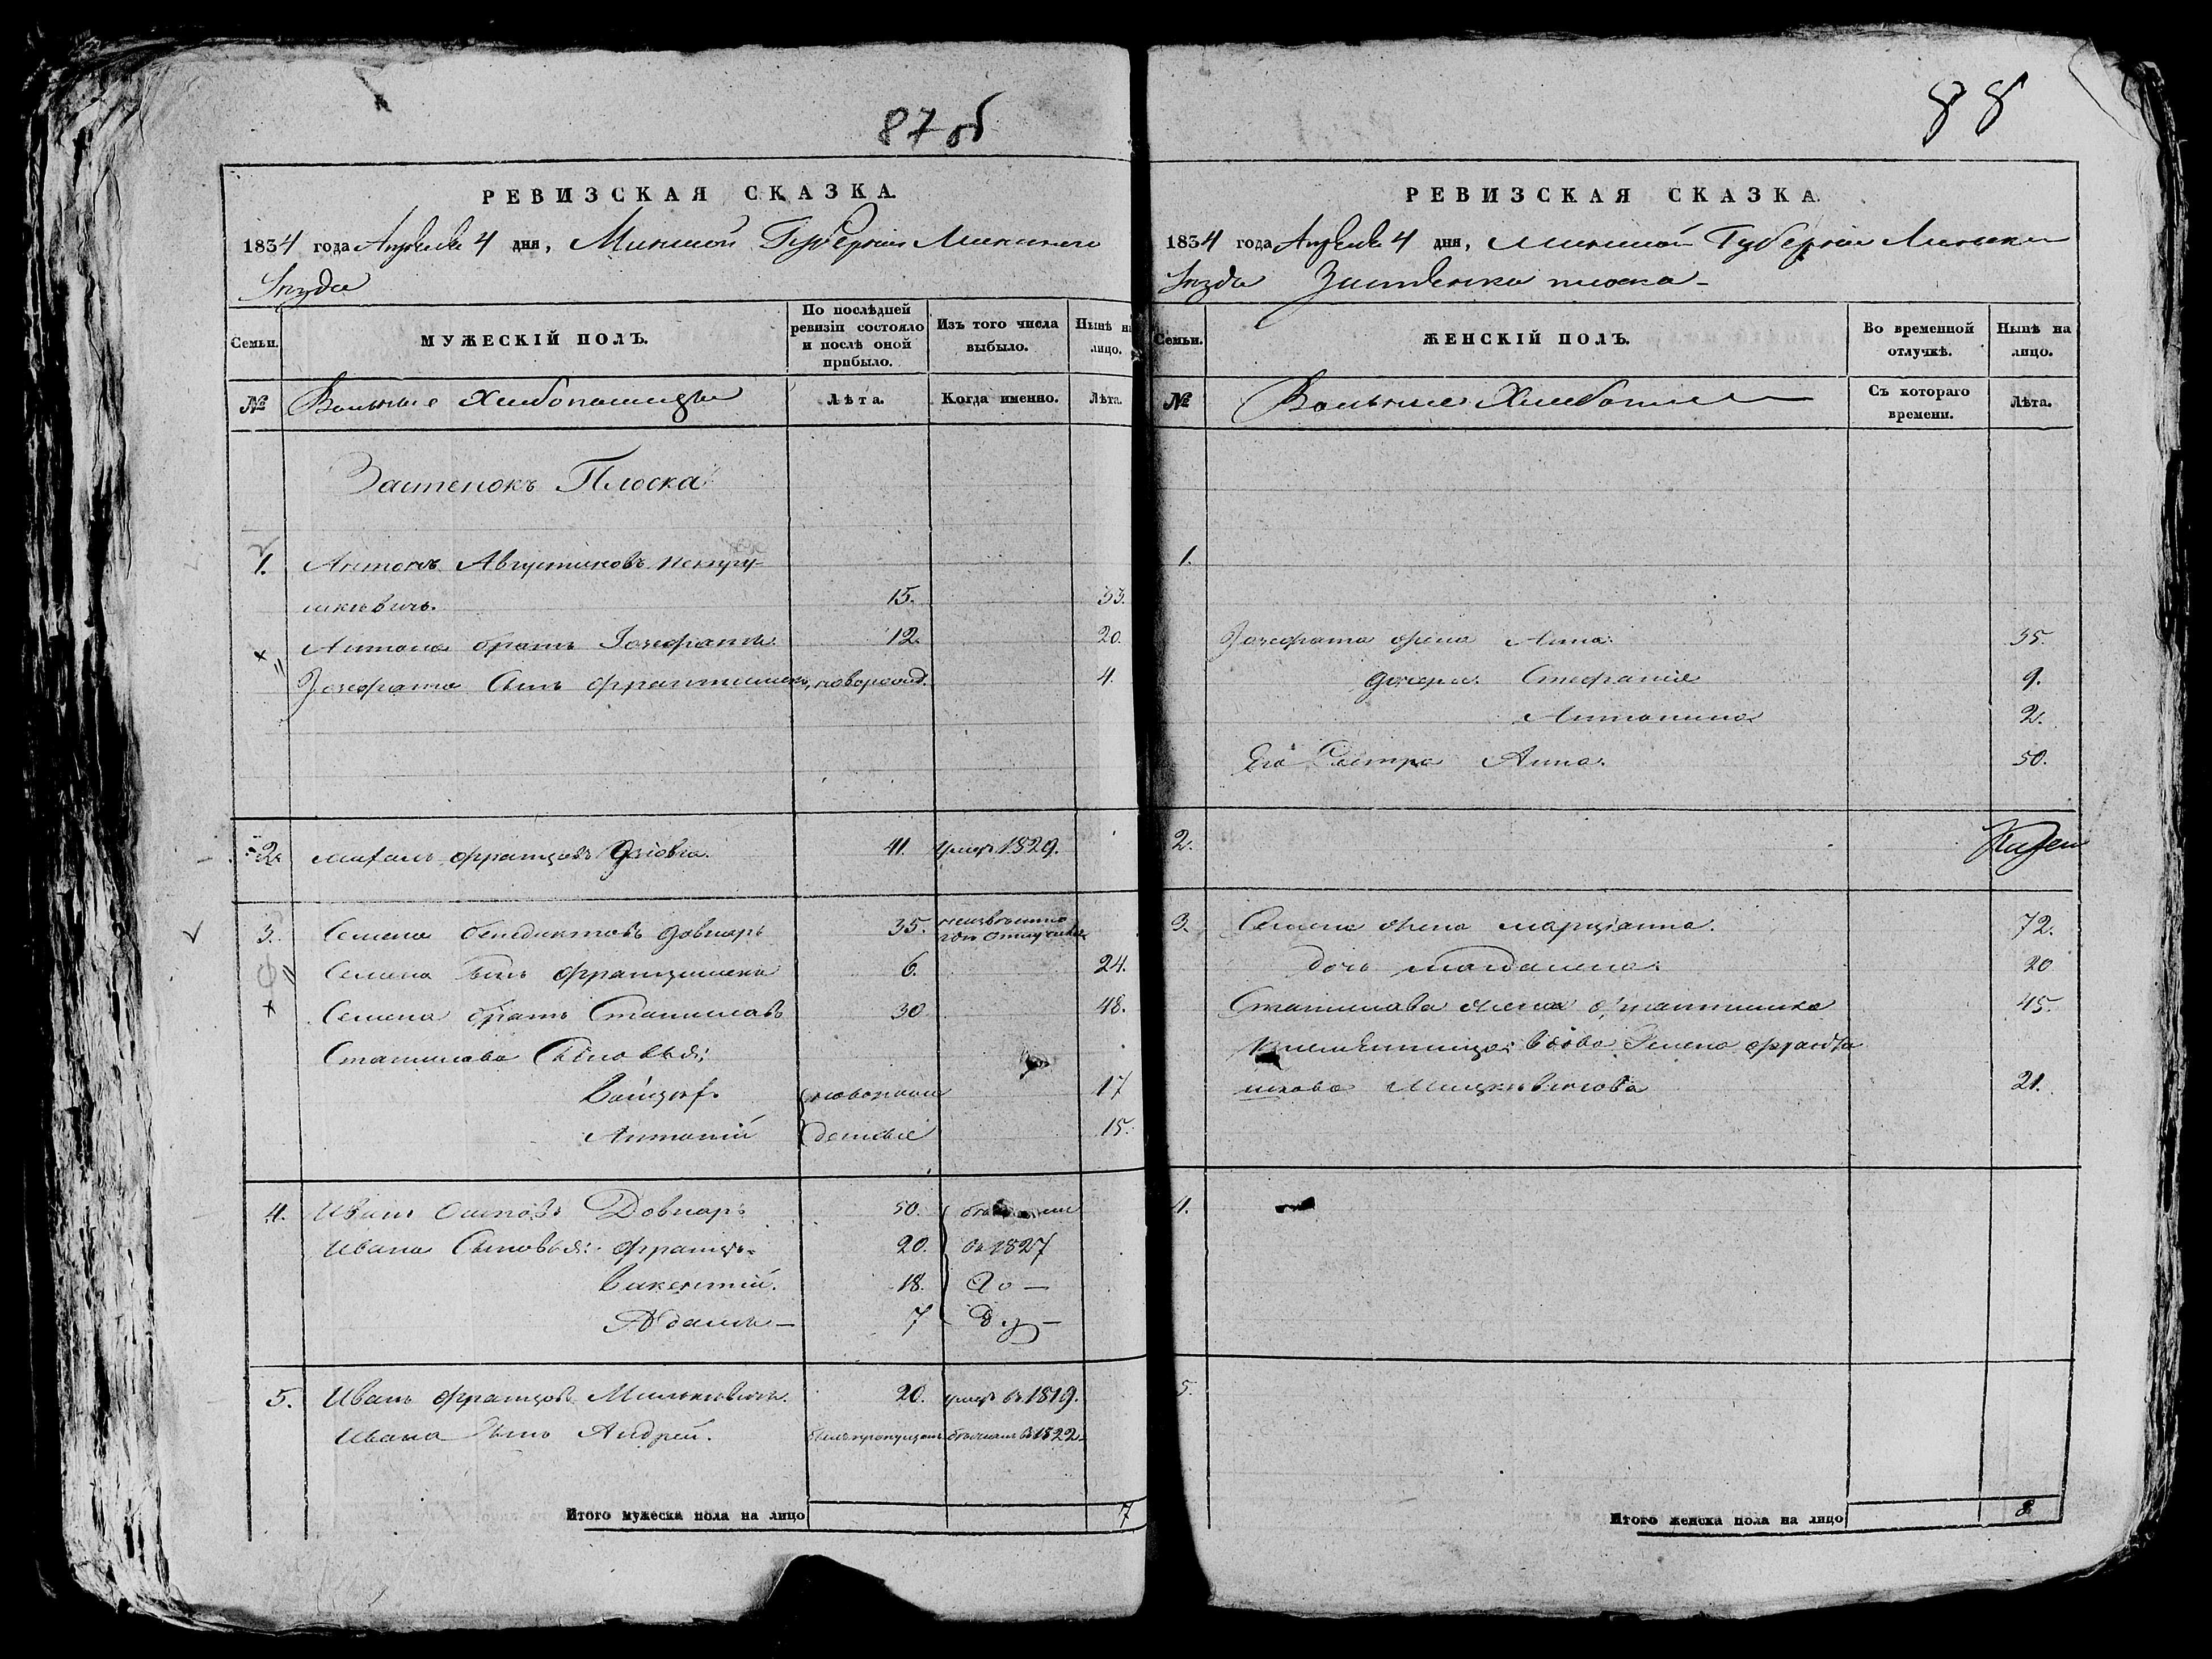 87 об
РЕВИЗСКАЯ СКАЗКА.
1834 года Апреля 4 дня, Минской Губернии Минскаго
Уезда
Семьи.
МУЖЕСКІЙ ПОЛЪ.
По послѣдней ревизіи состояло и послѣ оной прибыло.
Изъ того числа выбыло.
Нынѣ на лицо.
№ Вольные Хлебопашцы Лѣта. Когда именно. Лѣта.
Застенокъ Плоска
1. Антонъ Августиновъ
шкевичъ. 15. 33.
Антона братъ Іозефатъ 12. 20.
Іозефата Сынъ Францишекъ, новорожд. 4.
2. Михаилъ Францовъ 41. умеръ 1829.
3. Семенъ Бенедиктовъ Довнаръ 35. неизвестно
где отлучился
Семена Сынъ Францишекъ 6. 24.
Семена братъ Станиславъ 30 48.
Станислава Сыновья:
Войцех. новорож 17
Антоній денные 15.
4. Иванъ Осиповъ Довнаръ 50.
Ивана Сыновья: Францъ 20. въ 1827
Викентій. 18. До —
Адамъ — 7
5. Иванъ Францовъ Милькевичъ. 20. умеръ въ 1819.
Ивана Сынъ Андрей. былъ пропущенъ въ 1822
Итого мужеска пола на лицо 7
88
РЕВИЗСКАЯ СКАЗКА.
1834 года Апреля 4 дня, Минской Губернии Минска
Уезда Застенка плоска
Семьи.
ЖЕНСКІЙ ПОЛЪ.
Во временной отлучкѣ.
Нынѣ на лицо.
№ Вольные Хлебопаш Съ котораго времени. Лѣта.
1.
Іозефата жена Анна 35.
дочери Стефанія 9.
Антонина 2.
Его Сестра Анна. 50.
2.
3. Семена жена Марціанна. 72.
дочь Магдалена 20
Станислава жена Францишка 45.
племянница вдова Елена Францы
шкова Мицкевичова 21.
4.
5.
Итого женска пола на лицо 8